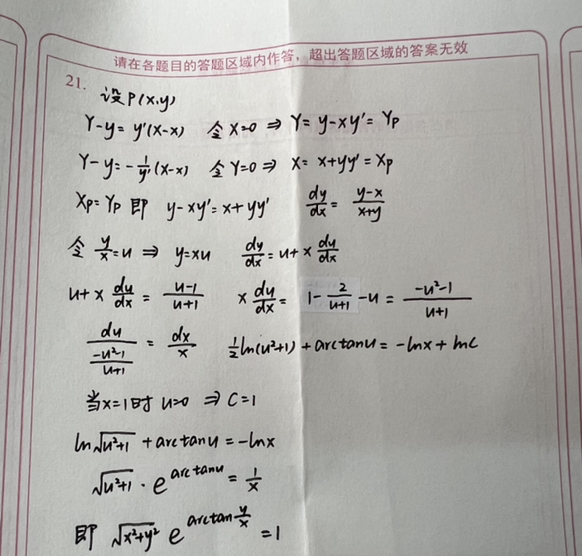 请在各题目的答题区域内作答，超出答题区域的答案无效
21.
设P(x,y)
Y-y=y'(X-x) 令X=0 ⇒ Y=y-xy'=Yp
Y-y=-1/y'(X-x) 令Y=0 ⇒ X=x+yy'=Xp
Xp=Yp 即 y-xy'=x+yy' dy/dx=(y-x)/(x+y)
令 y/x=u ⇒ y=xu dy/dx=u+x du/dx
u+x du/dx=(u-1)/(u+1) x du/dx=1-2/(u+1)-u=(-u²-1)/(u+1)
du/((-u²-1)/(u+1))=dx/x ½ln(u²+1)+arctanu=-lnx+lnC
当x=1时 u=0 ⇒ C=1
ln√(u²+1)+arctanu=-lnx
√(u²+1)·e^(arctanu)=1/x
即 √(x²+y²) e^(arctan y/x)=1